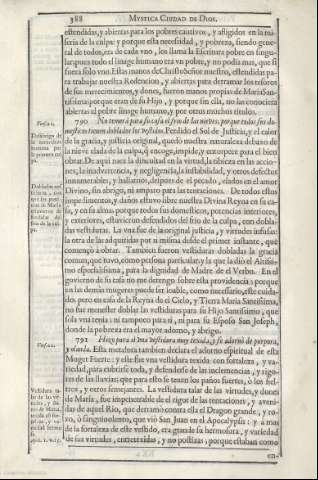 388 MYSTICA CIUDAD DE DIOS.
estendidas, y abiertas para los pobres cautivos, y afligidos en la mi-
seria de la culpa: y porque esta necesidad, y pobreza, siendo gene-
ral de todos, era de cada uno, los llama la Escritura pobre en singu-
lar; pues todo el linage humano era un pobre, y no podia mas, que si
fuera solo uno. Estas manos de Christo nuestro, estendidas pa-
ra trabajar nuestra Redencion, y abiertas para derramar los tesoros
de sus merecimientos, y dones, fueron manos propias de Maria San-
tissima; porque eran de su Hijo, y porque sin ella, no las conociera
abiertas el pobre linage humano, y por otros muchos titulos.
Vers. 21.
790 No temerà para su casa el frio de las nieves; porque todos sus do-
mesticos tienen doblados los vestidos. Perdido el Sol de Justicia, y el calor
de la gracia, y justicia original, quedò nuestra naturaleza debaxo de
la nieve elada de la culpa, que encoge, impide, y entorpece para el bien
obrar. De aqui nace la dificultad en la virtud, la tibieza en las accio-
nes, la inadvertencia, y negligencia, la instabilidad, y otros defectos
innumerables, y hallarnos, despues de el pecado, elados en el amor
Divino, sin abrigo, ni amparo para las tentaciones. De todos estos
impedimentos, y daños estuvo libre nuestra Divina Reyna en su ca-
sa, y en su alma: porque todos sus domesticos, potencias interiores,
y exteriores, estuvieron defendidos del frio de la culpa, con dobla-
das vestiduras. La una fue de la original justicia, y virtudes infusas:
la otra de las adquiridas por si misma desde el primer instante, que
començò à obrar. Tambien fueron vestiduras dobladas la gracia
comun, que tuvo, como persona particular, y la que la diò el Altissi-
mo especialissima, para la dignidad de Madre de el Verbo. En el
govierno de su casa no me detengo sobre esta providencia: porque
en las demàs mugeres puede ser loable, como necessario, este cuida-
do: pero en casa de la Reyna de el Cielo, y Tierra Maria Santissima,
no fue menester doblar las vestiduras para su Hijo Santissimo, que
sola una tenia: ni tampoco para si, ni para su Esposo San Joseph,
donde la pobreza era el mayor adorno, y abrigo.
Vers. 22.
791 Hizo para sì una vestidura muy texida, y se adornò de purpura,
y olanda. Esta metafora tambien declara el adorno espiritual de esta
Muger Fuerte: y este fue una vestidura texida con fortaleza, y va-
riedad, para cubrirse toda, y defenderse de las inclemencias, y rigo-
res de las lluvias; que para esto se texen los paños fuertes, ò los fiel-
tros, y otros semejantes. La vestidura talar de las virtudes, y dones
de Maria, fue impenetrable de el rigor de las tentaciones, y aveni-
das de aquel Rio, que derramò contra ella el Dragon grande, y ro-
xo, ò sanguinolento, que viò San Juan en el Apocalypsi: y à mas
de la fortaleza de este vestido, era grande su hermosura, y variedad
de sus virtudes, entretexidas, y no postizas; porque estaban como
en-